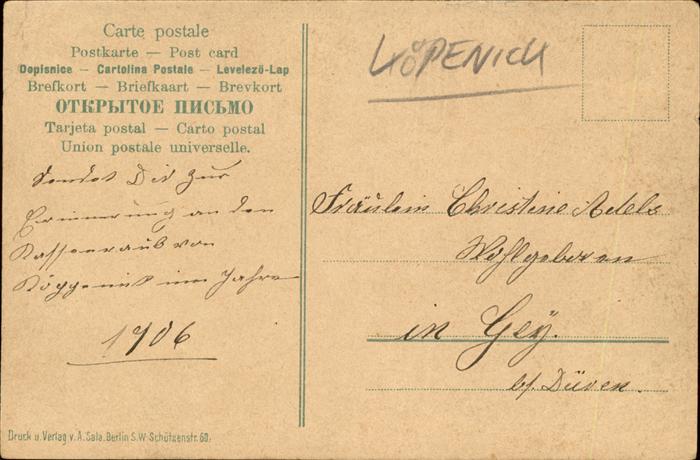 Carte postale
Postkarte — Post card
Dopisnice — Cartolina Postale — Levelező-Lap
Brefkort — Briefkaart — Brevkort
ОТКРЫТОЕ ПИСЬМО
Tarjeta postal — Carto postal
Union postale universelle.
KÖPENICK
Sendet Dir zur
Erinnerung an den
Kassenraub von
Köppenik im Jahre
1906
Fräulein Christine Adels
Wohlgeboren
in Gey.
b/ Düren.
Druck u. Verlag v. A. Sala. Berlin S.W. Schützenstr. 60.